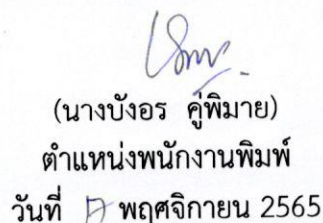 (นางบังอร คู่พิมาย)
ตำแหน่งพนักงานพิมพ์
วันที่ 17 พฤศจิกายน 2565